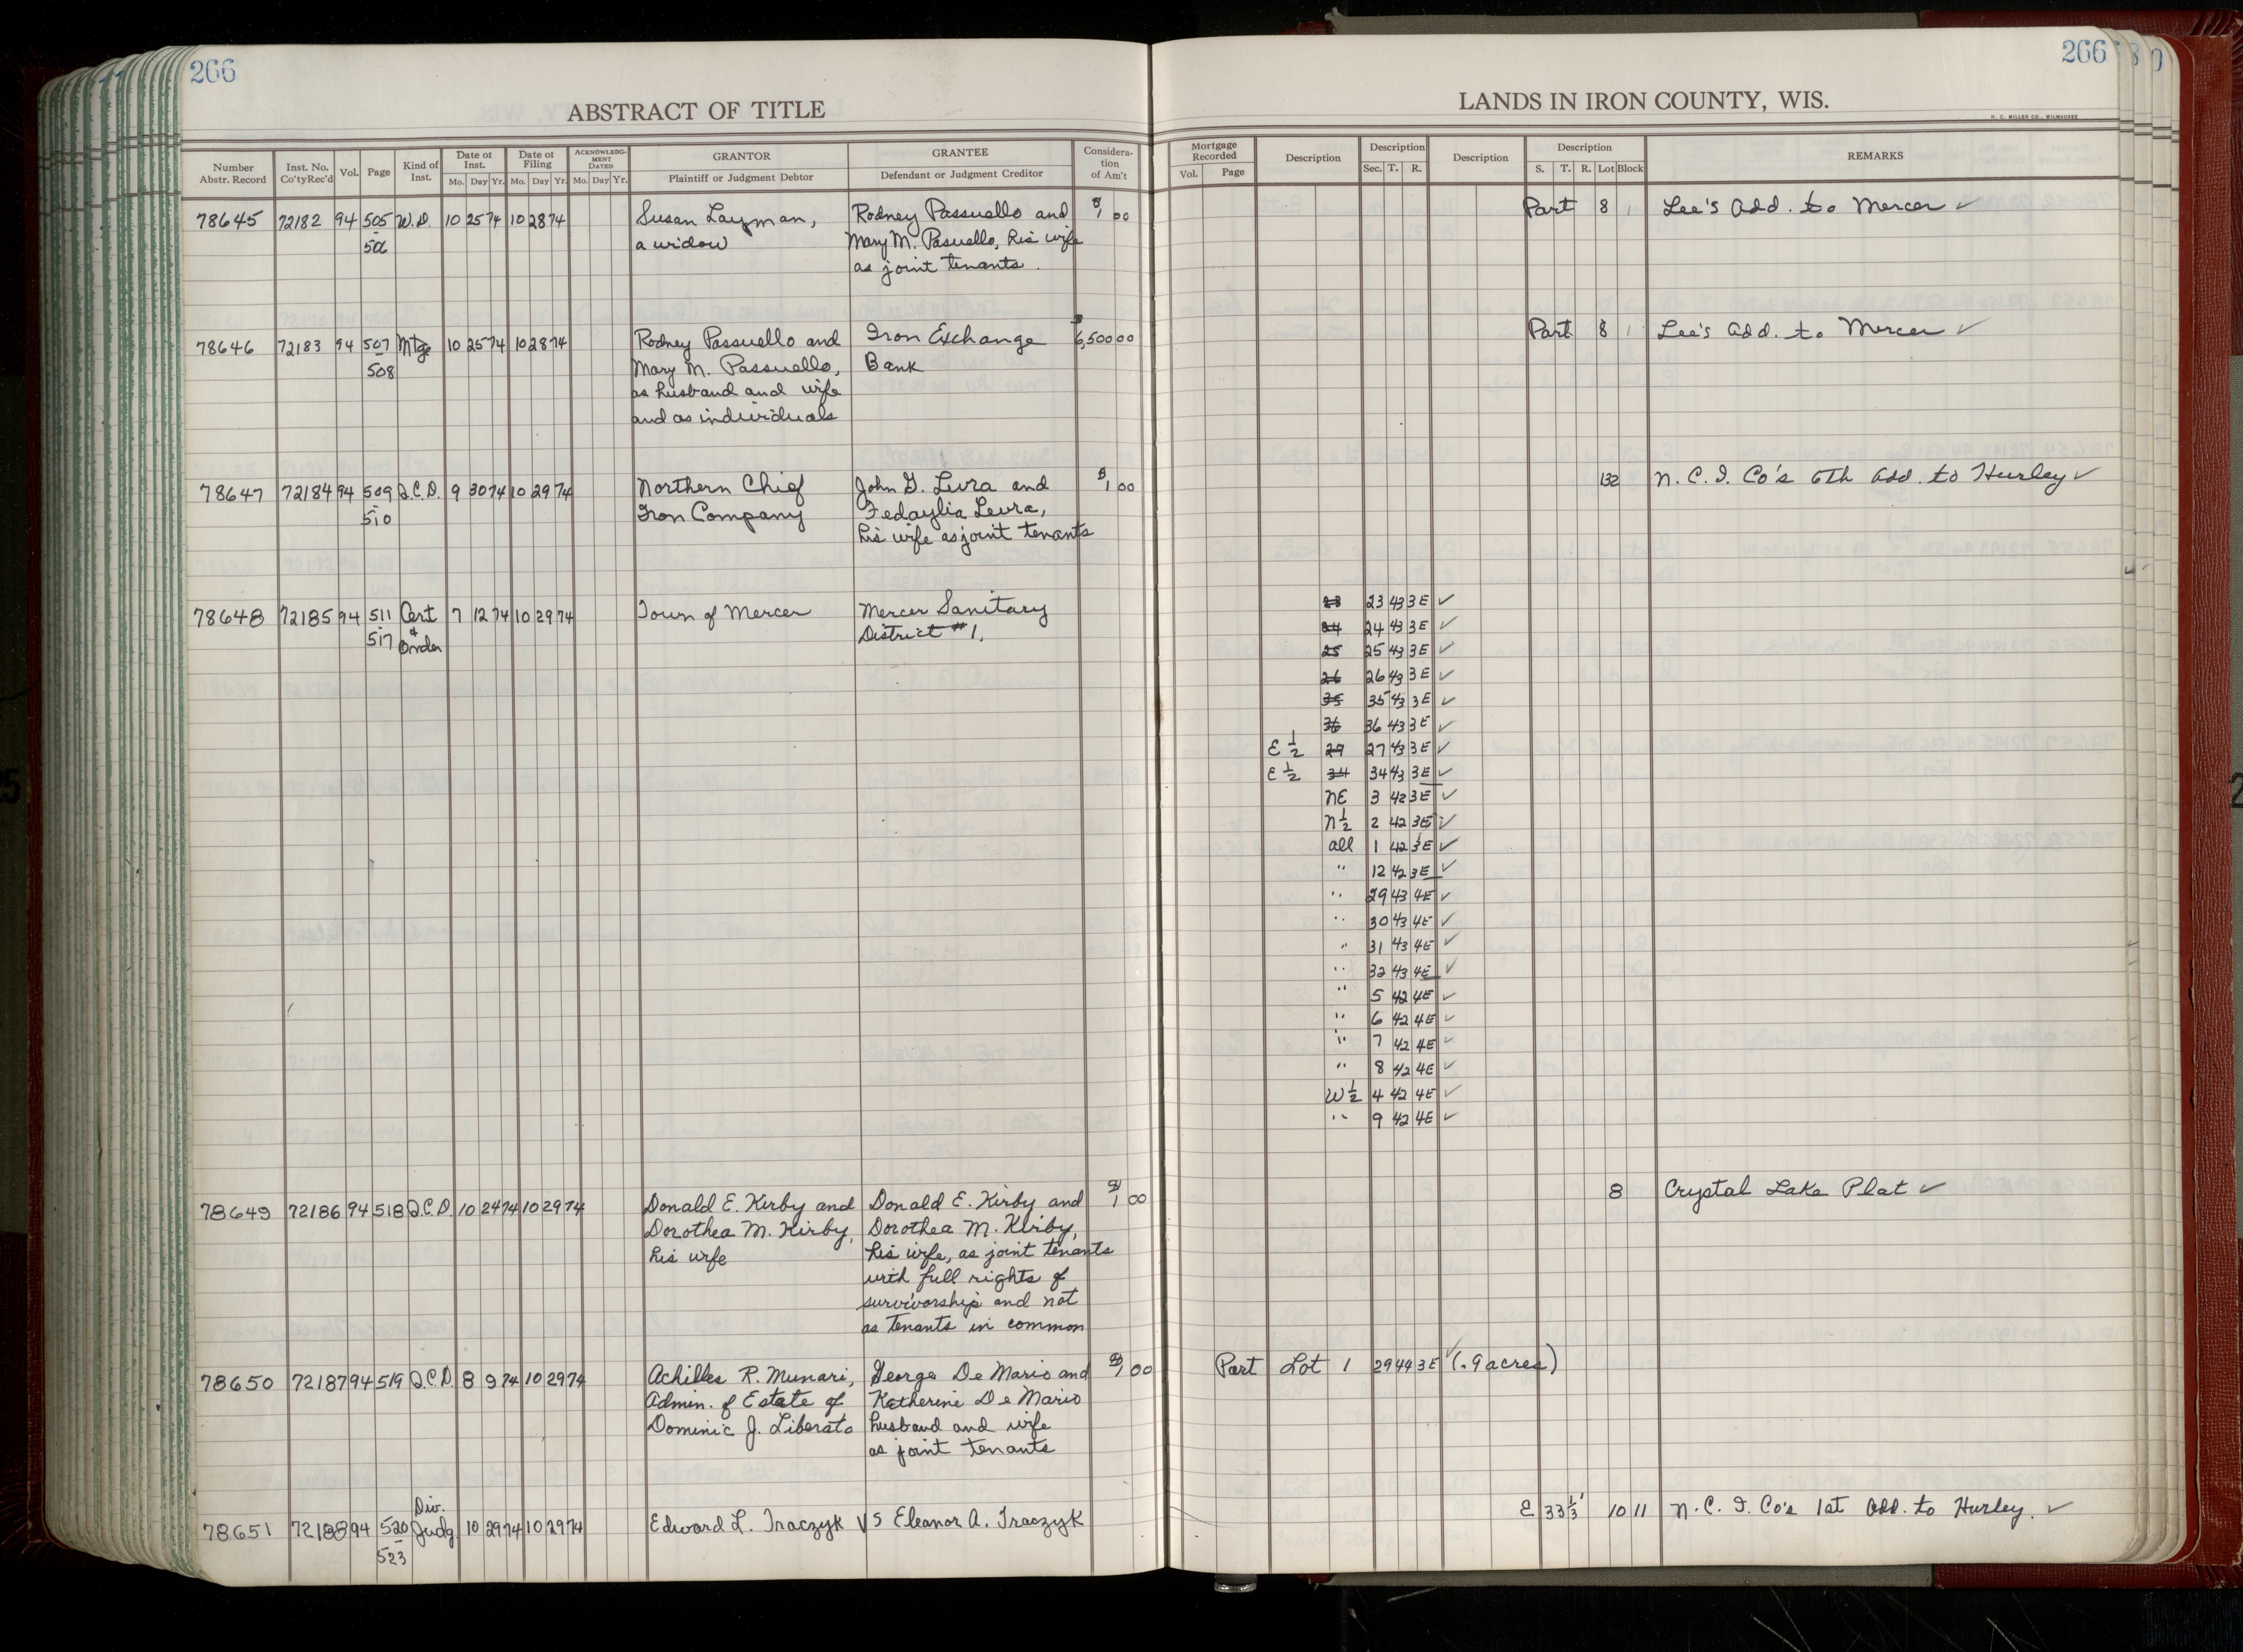 266
266
ABSTRACT OF TITLE
LANDS IN IRON COUNTY, WIS.
H. C. MILLER CO., MILWAUKEE
Number Abstr. Record
Inst. No. Co'ty Rec'd
Vol.
Page
Kind of Inst.
Date of Inst.
Mo. Day Yr.
Date of Filing
Mo. Day Yr.
ACKNOWLEDG-MENT DATED
Mo. Day Yr.
GRANTOR
Plaintiff or Judgment Debtor
GRANTEE
Defendant or Judgment Creditor
Considera-tion of Am't
Mortgage Recorded
Vol. Page
Description
Description
Sec. T. R.
Description
Description
S. T. R. Lot Block
REMARKS
78645 72182 94 505 W.D. 10 25 74 10 28 74 Susan Layman, Rodney Passuello and $1 00 Part 8 1 Lee's Add. to Mercer ✓
506 a widow Mary M. Pasuello, his wife
as joint tenants.
78646 72183 94 507 Mtge 10 25 74 10 28 74 Rodney Passuello and Iron Exchange $6,500 00 Part 8 1 Lee's Add. to Mercer ✓
508 Mary M. Passuello, Bank
as husband and wife
and as individuals
78647 72184 94 509 Q.C.D. 9 30 74 10 29 74 Northern Chief John G. Livra and $1 00 132 N.C.I. Co's 6th Add. to Hurley ✓
510 Iron Company Fedaylia Levra,
his wife as joint tenants
78648 72185 94 511 Cert 7 12 74 10 29 74 Town of Mercer Mercer Sanitary 23 23 43 3E ✓
517 & Order District #1. 24 24 43 3E ✓
25 25 43 3E ✓
26 26 43 3E ✓
35 35 43 3E ✓
36 36 43 3E ✓
E 1/2 27 27 43 3E ✓
E 1/2 34 34 43 3E ✓
NE 3 42 3E ✓
N 1/2 2 42 3E ✓
all 1 42 3E ✓
" 12 42 3E ✓
" 29 43 4E ✓
" 30 43 4E ✓
" 31 43 4E ✓
" 32 43 4E ✓
" 5 42 4E ✓
" 6 42 4E ✓
" 7 42 4E ✓
" 8 42 4E ✓
W 1/2 4 42 4E ✓
" 9 42 4E ✓
78649 72186 94 518 Q.C.D. 10 24 74 10 29 74 Donald E. Kirby and Donald E. Kirby and $1 00 8 Crystal Lake Plat ✓
Dorothea M. Kirby, Dorothea M. Kirby,
his wife his wife, as joint tenants
with full rights of
survivorship and not
as tenants in common
78650 72187 94 519 Q.C.D. 8 9 74 10 29 74 Achilles R. Munari, George De Mario and $1 00 Part Lot 1 29 44 3E ✓ (.9 acres)
Admin. of Estate of Katherine De Mario
Dominic J. Liberato husband and wife
as joint tenants
78651 72188 94 520 Div. Judg 10 29 74 10 29 74 Edward L. Traczyk vs Eleanor A. Traczyk E 33 1/3' 10 11 N.C.I. Co's 1st Add. to Hurley. ✓
523